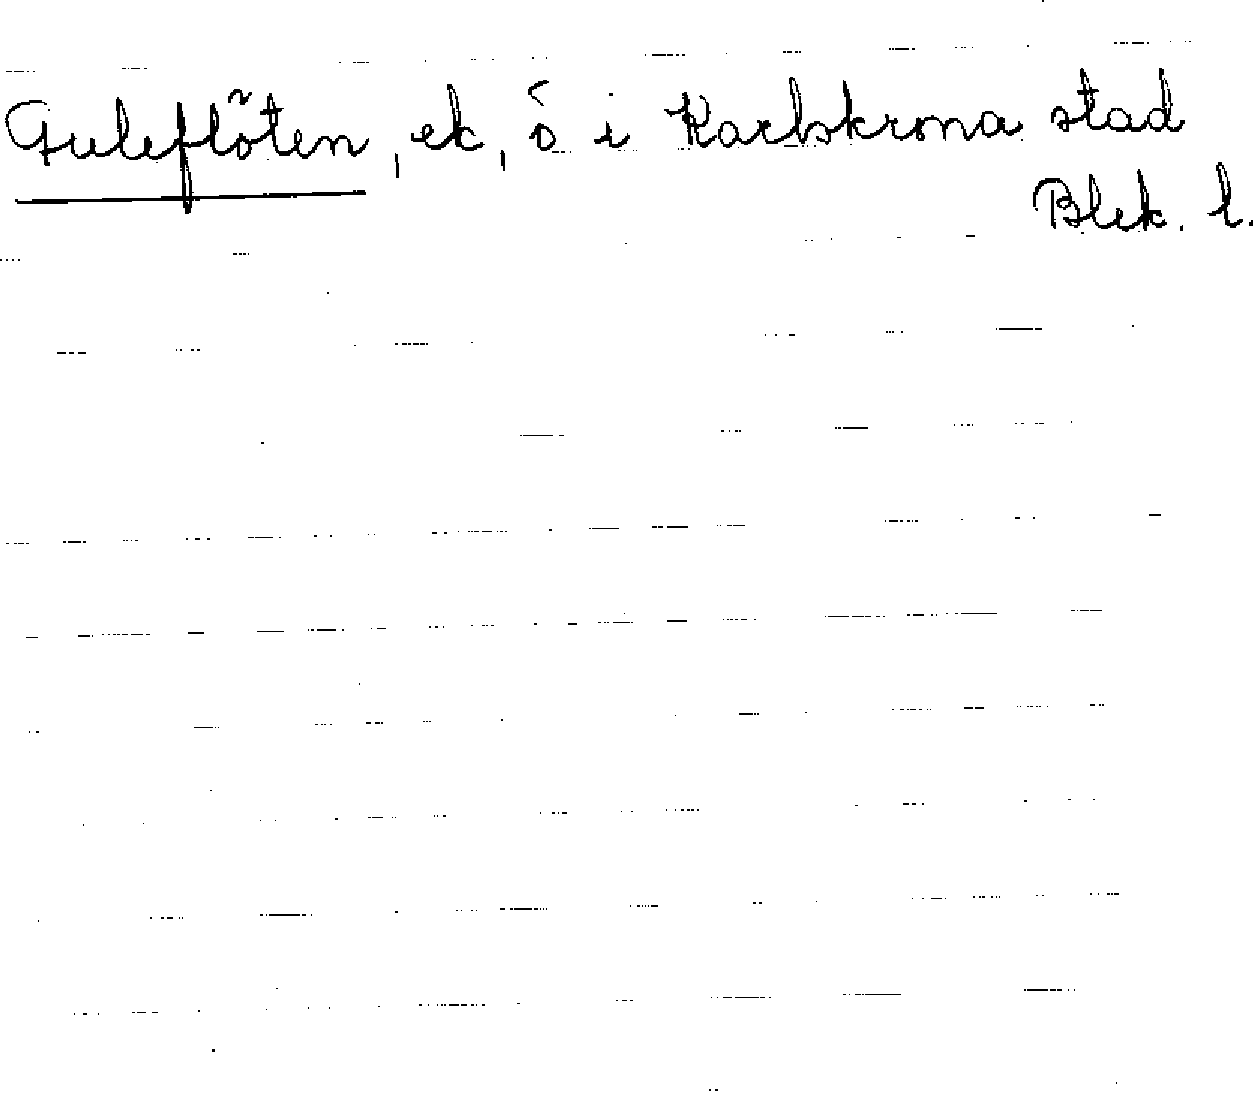 Guleflöten, ek, ö i Karlskrona stad
Blek. l.